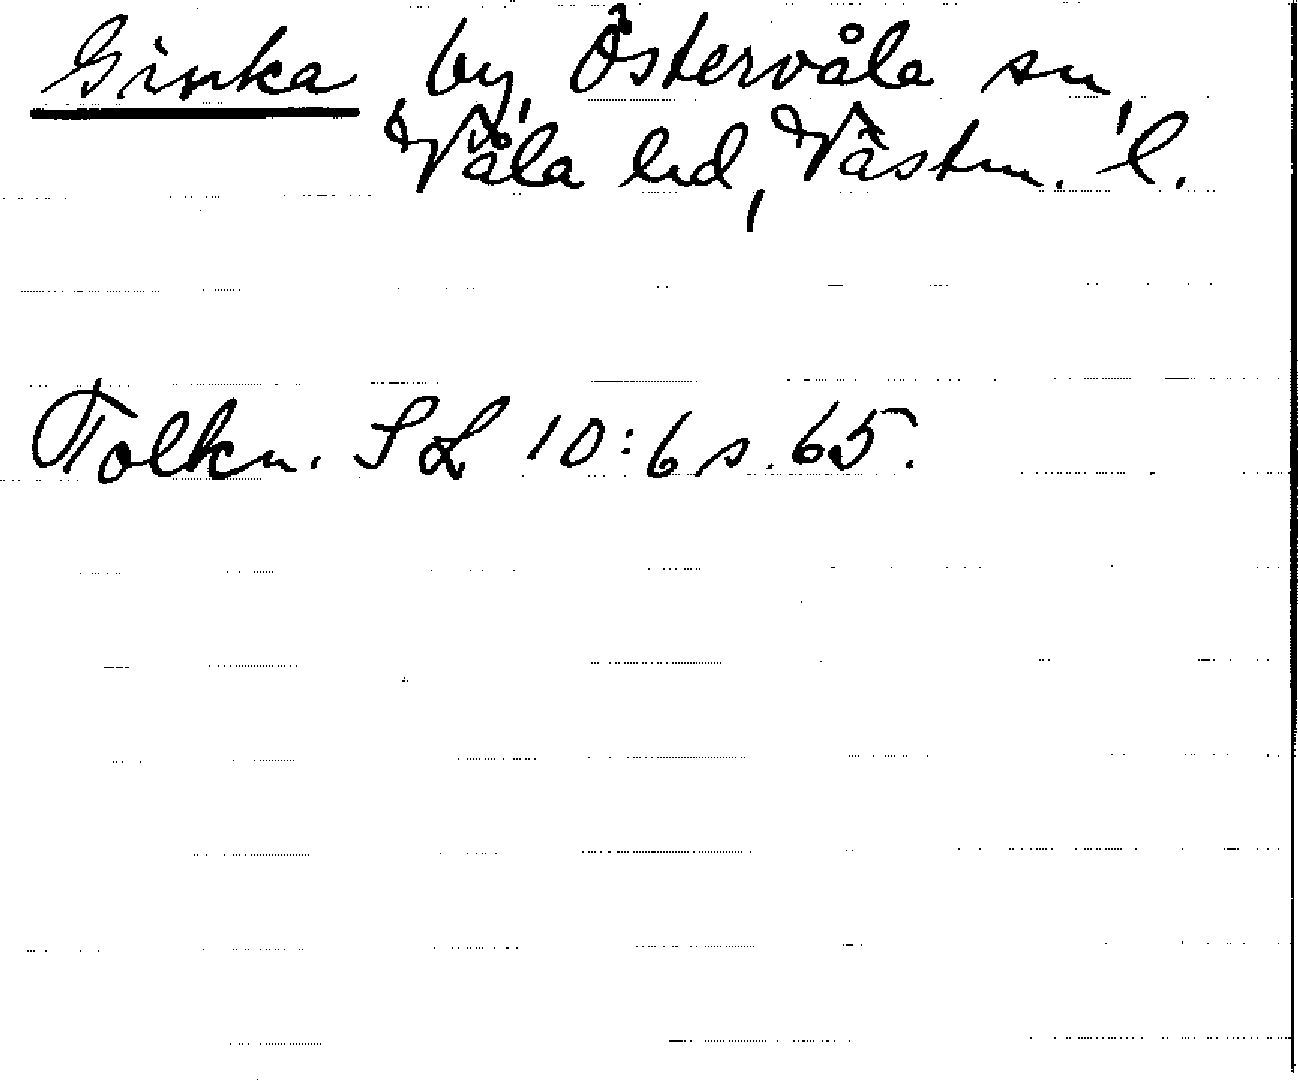 Ginka, by, Östervåla sn,
Våla hd, Västm. l.
Tolkn. SL 10:6 s. 65.